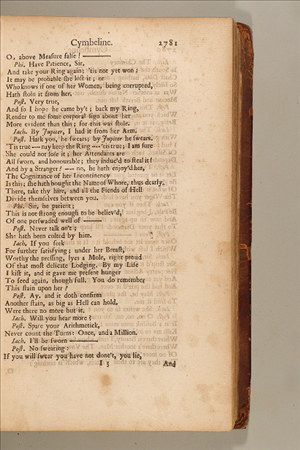 Cymbeline. 2781
O, above Measure false! ———
Phi. Have Patience, Sir,
And take your Ring again; 'tis not yet won;
It may be probable she lost it; or
Who knows if one of her Women, being corrupted,
Hath stoln it from her.
Post. Very true,
And so I hope he came by't; back my Ring,
Render to me some corporal sign about her
More evident than this; for this was stole.
Iach. By Jupiter, I had it from her Arm.
Post. Hark you, he swears; by Jupiter he swears.
'Tis true — nay keep the Ring — 'tis true; I am sure
She could not lose it; her Attendants are
All sworn, and honourable; they induc'd to steal it!
And by a Stranger! — no, he hath enjoy'd her,
The Cognizance of her Incontinency
Is this; she hath bought the Name of Whore, thus dearly,
There, take thy hire, and all the Fiends of Hell
Divide themselves between you.
Phi. Sir, be patient;
This is not strong enough to be believ'd,
Of one perswaded well of ———
Post. Never talk on't;
She hath been colted by him.
Iach. If you seek
For further satisfying; under her Breast,
Worthy the pressing, lyes a Mole, right proud
Of that most delicate Lodging. By my Life
I kist it, and it gave me present hunger
To feed again, though full. You do remember
This stain upon her?
Post. Ay, and it doth confirm
Another stain, as big as Hell can hold,
Were there no more but it.
Iach. Will you hear more?
Post. Spare your Arithmetick,
Never count the Turns: Once, and a Million.
Iach. I'll be sworn ———
Post. No swearing:
If you will swear you have not done't, you lie,
I 3 And